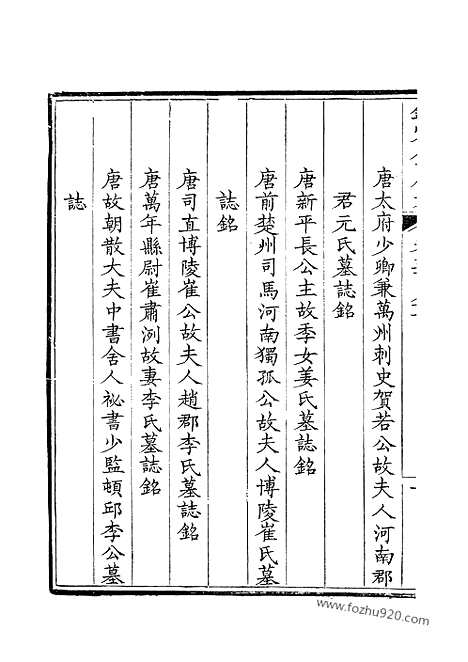 唐太府少卿兼萬州刺史賀若公故夫人河南郡
君元氏墓誌銘
唐新平長公主故季女姜氏墓誌銘
唐前楚州司馬河南獨孤公故夫人博陵崔氏墓
誌銘
唐司直博陵崔公故夫人趙郡李氏墓誌銘
唐萬年縣尉崔肅洌故妻李氏墓誌銘
唐故朝散大夫中書舍人祕書少監頓邱李公墓
誌
www.fozhu920.com